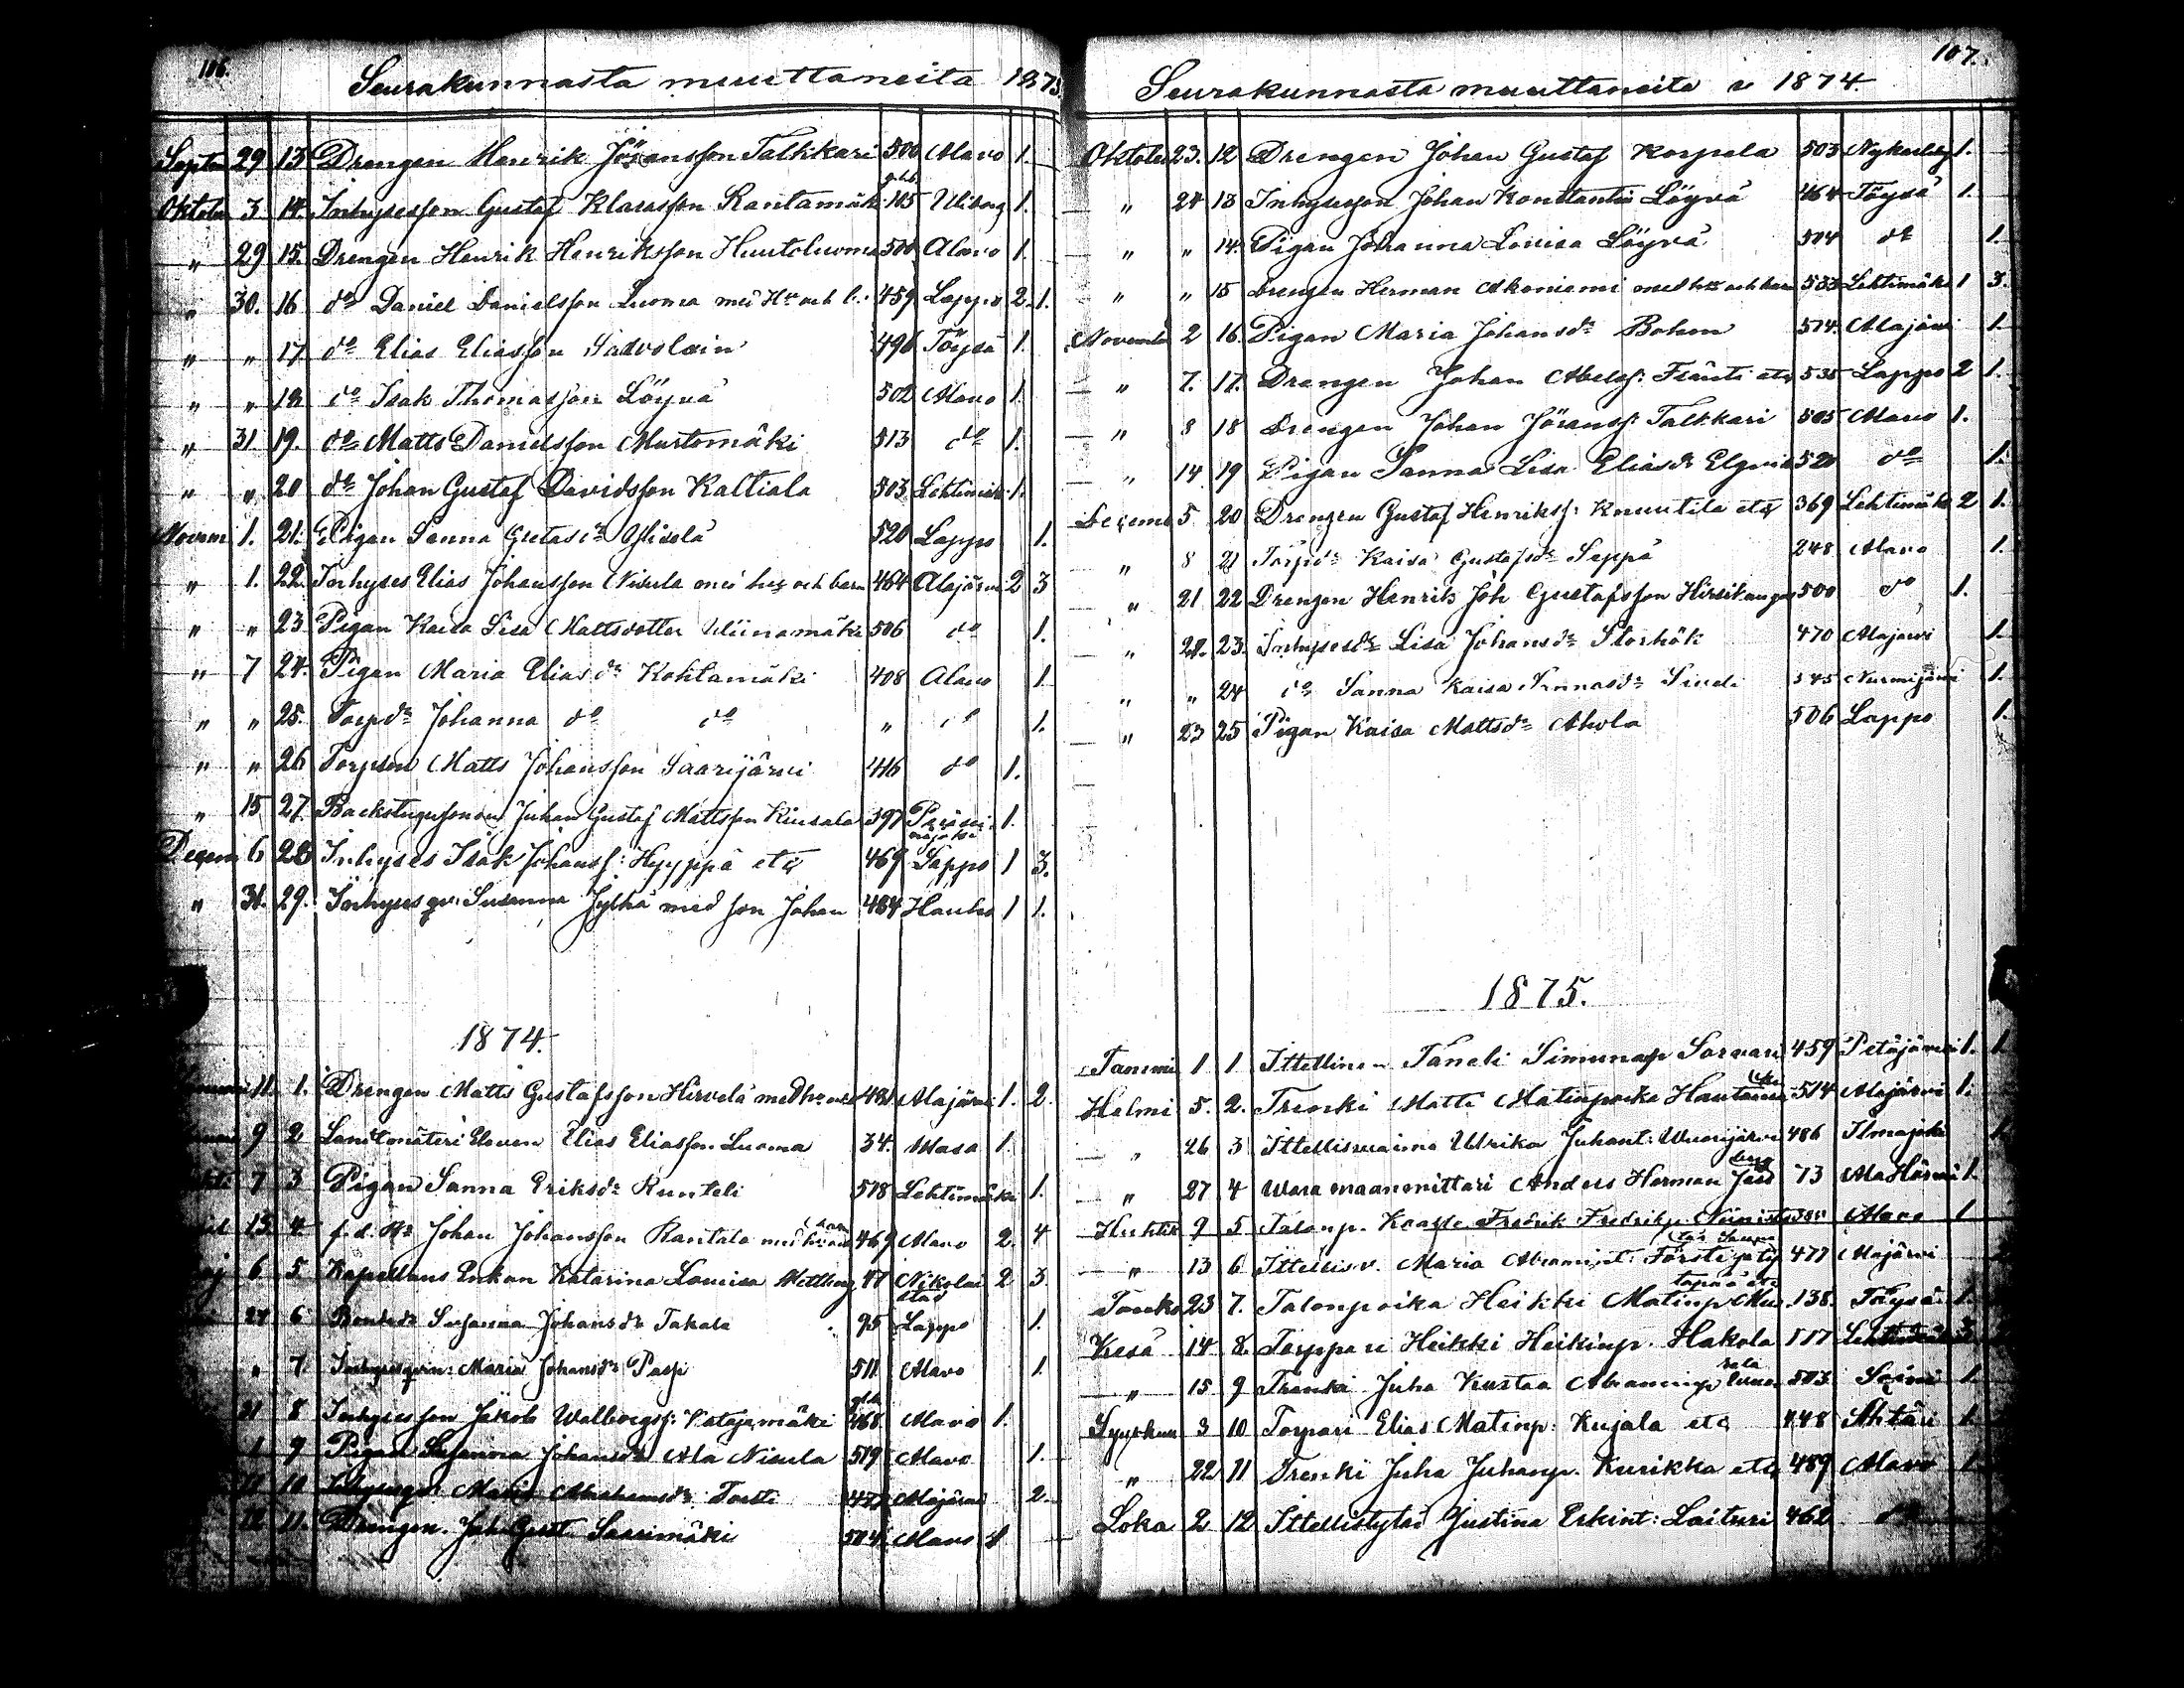 106.
Seurakunnasta muuttaneita 1873.
Septem 29 13 Drengen Henrik Jöransson Talkkari 500 Alavo 1.
Oktober 3. 14. Inhysesson Gustaf Klarasson Rantamäki 105 Wiborg 1.
" 29 15. Drengen Henrik Henriksson Huutoluoma 500 Alavo 1.
" 30. 16 do Daniel Danielsson Luoma med Hu och 459 Lappo 2. 1.
" " 17 do Elias Eliasson 496 Töysä 1.
" " 18 do Isak Thomasson Löyvä 502 Alavo 1.
" 31. 19. do Matts Danielsson Mustomäki 513 do 1.
" " 20 do Johan Gustaf Davidsson Kaltiala 503 Lehtimäki 1.
Novem 1. 21. Pigan Sanna Gretasdr Ylisolä 520 Lappo 1.
" 1. 22. Inhyses Elias Johansson Nisula med hu och barn 464 Alajärvi 2 3
" " 23 Pigan Kaisa Lisa Mattsdotter Wiinamäki 506 do 1.
" 7 24. Pigan Maria Eliasdr Kohtamäki 408 Alavo 1
" " 25. Torpdr Johanna do do " do 1.
" " 26 Torpson Matts Johansson Saarijärvi 446 do 1.
" 15 27. Backstugusonen Juhan Gustaf Mattsson Kiusala 397 1.
Decem 6 28 Inhyses Isak Johanss: Hyyppä etc 469 Lappo 1 3.
" 31. 29. Inhyses qv: Susanna Jylhä med son Johan 484 Hauho 1 1.
1874.
11. 1. Drengen Matts Gustafsson Hirvelä med hu 481 Alajärvi 1. 2.
9 2 Landtmäteri Eleven Elias Eliasson Luoma 34. Wasa 1.
7 3 Pigan Sanna Eriksdr Runteli 518 Lehtimäki 1.
13. 4 f.d. Johan Johansson Rantala med hu och barn 469 Alavo 2. 4
6 5. Kapellans Enkan Katarina Lovisa 47 Nikolaistad 2 3.
24 6 Bondedr Susanna Johansdr Takala 95 Lappo 1.
" 7. Inhysesqvin: Maria Johansdr Passi 511 Alavo 1.
21 8 Inhysesson Jakob Walborgss: Katajamäki 468 Alavo 1.
1 9 Pigan Susanna Johansdr Ala Nisula 519 Alavo 1.
10 Maria Abrahamsdr Försti 477 Alajärvi 2.
12 11. Drengen Joh. Gust. Saarimäki 504 Alavo 1
107.
Seurakunnasta muuttaneita v 1874.
Oktober 23. 12 Drengen Johan Gustaf Korpela 503 Nykarleby 1.
" 24 13 Inhysesson Johan Konstantin Löyvä 464 Töysä 1.
" " 14. Pigan Johanna Lovisa Löyvä 514 do 1.
" " 15 Drengen Herman Akoniemi med hu och barn 533 Lehtimäki 1 3.
November 2 16. Pigan Maria Johansdr Bohm 514. Alajärvi 1.
" 7. 17. Drengen Johan Abelss: Fränti etc 535 Lappo 2 1.
" 8 18 Drengen Johan Jöranss: Talkkari 505 Alavo 1.
" 14 19 Pigan Sanna Lisa Eliasdr 520 do 1.
Decemb 5 20 Drengen Gustaf Henrikss: Knuutila etc 369 Lehtimäki 2 1.
" 8 21 Torpdr Kaisa Gustafsdr Seppä 248 Alavo 1.
" 21 22 Drengen Henrik Joh Gustafsson Hirsikangas 500 do 1.
" 22. 23. Inhysesdr Lisa Johansdr Storhök 470 Alajärvi 1.
" " 24 do Sanna Kaisa 345 Nurmijärvi 1.
" 23 25 Pigan Kaisa Mattsdr Ahola 506 Lappo 1.
1875.
Tammi 1 1 Ittellinen Taneli Simunap Sorvari 459 Petäjävesi 1. 1
Helmi 5. 2. Trenki Matti Matinpoika 514 Alajärvi 1.
" 26 3 Ittellisvaimo Ulrika Juhant: Wuorijärvi 486 Ilmajoki 1.
" 27 4 Wara maanmittari Anders Herman 73 Ala Härmä 1.
Huhti 9 5 Talonp. Kaappo Fredrik Fredrikp. Niinistö 300 Alavo 1
" 13 6 Ittellisv. Maria Abramint: Försti ja tytär Sanna 477 Alajärvi
Touko 23 7. Talonpoika Heikki Matinp 138. Töysä 1.
Kesä 14 8. Torppari Heikki Heikinp. Hakola 517 Lehtimäki 3
" 15 9 Trenki Juha Kustaa Abraminp 503 Soini 1.
Syyskuu 3 10 Torpari Elias Matinp: Kujala etc 448 Ähtäri 1.
" 22 11 Trenki Juha Juhanp. Kurikka etc 489 Alavo 1.
Loka 2 12 Ittellistytär Justina Erkint: Laituri 462 do